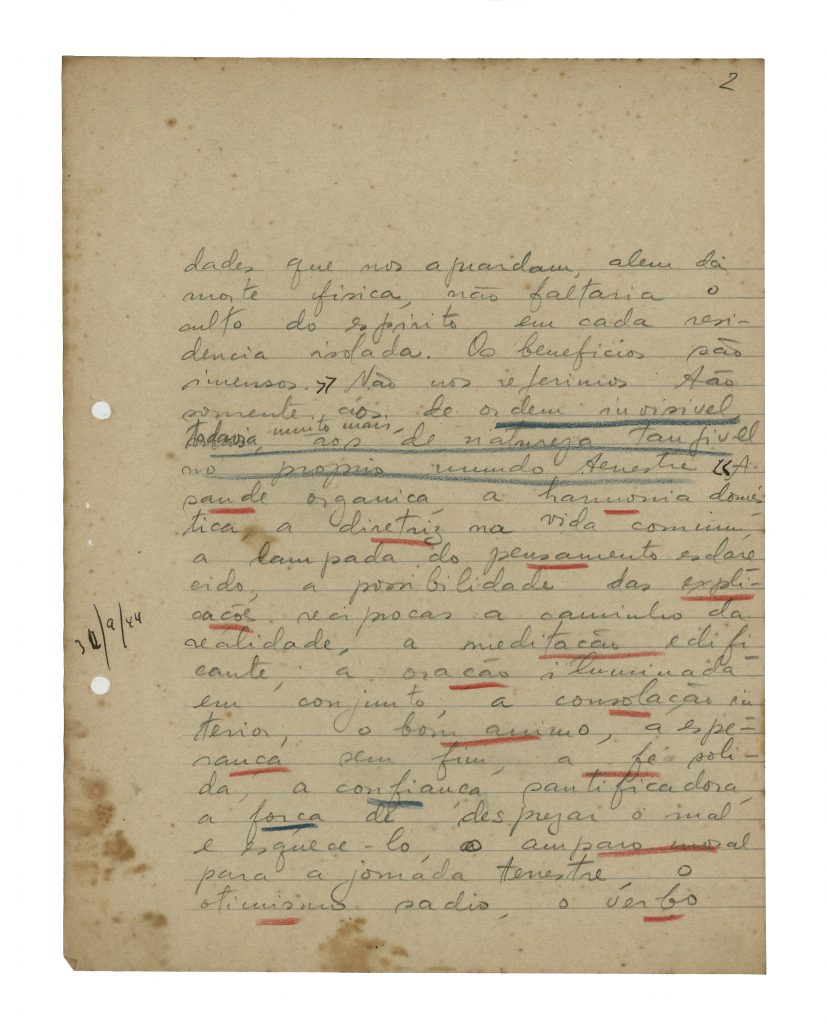 2
dades que nos aguardam, alem da
morte fisica, não faltaria o
culto do espirito em cada resi-
dencia isolada. Os beneficios são
imensos. >> Não nos referimos tão
somente, aos de ordem invisivel,
todavia, muito mais,
aos de natureza tangivel
no proprio mundo terrestre << A
saude organica, a harmonia domés
tica, a diretriz na vida comum,
a lampada do pensamento esclare
cido, a possibilidade das expli-
cações reciprocas a caminho da
realidade, a meditação edifi
cante, a oração iluminada
em conjunto, a consolação in
terior, o bom animo, a espe-
rança sem fim, a fé soli-
da, a confiança santificadora,
a força de desprezar o mal
e esquece-lo, o amparo moral
para a jornada terrestre o
otimismo sadio, o verbo
/9/44